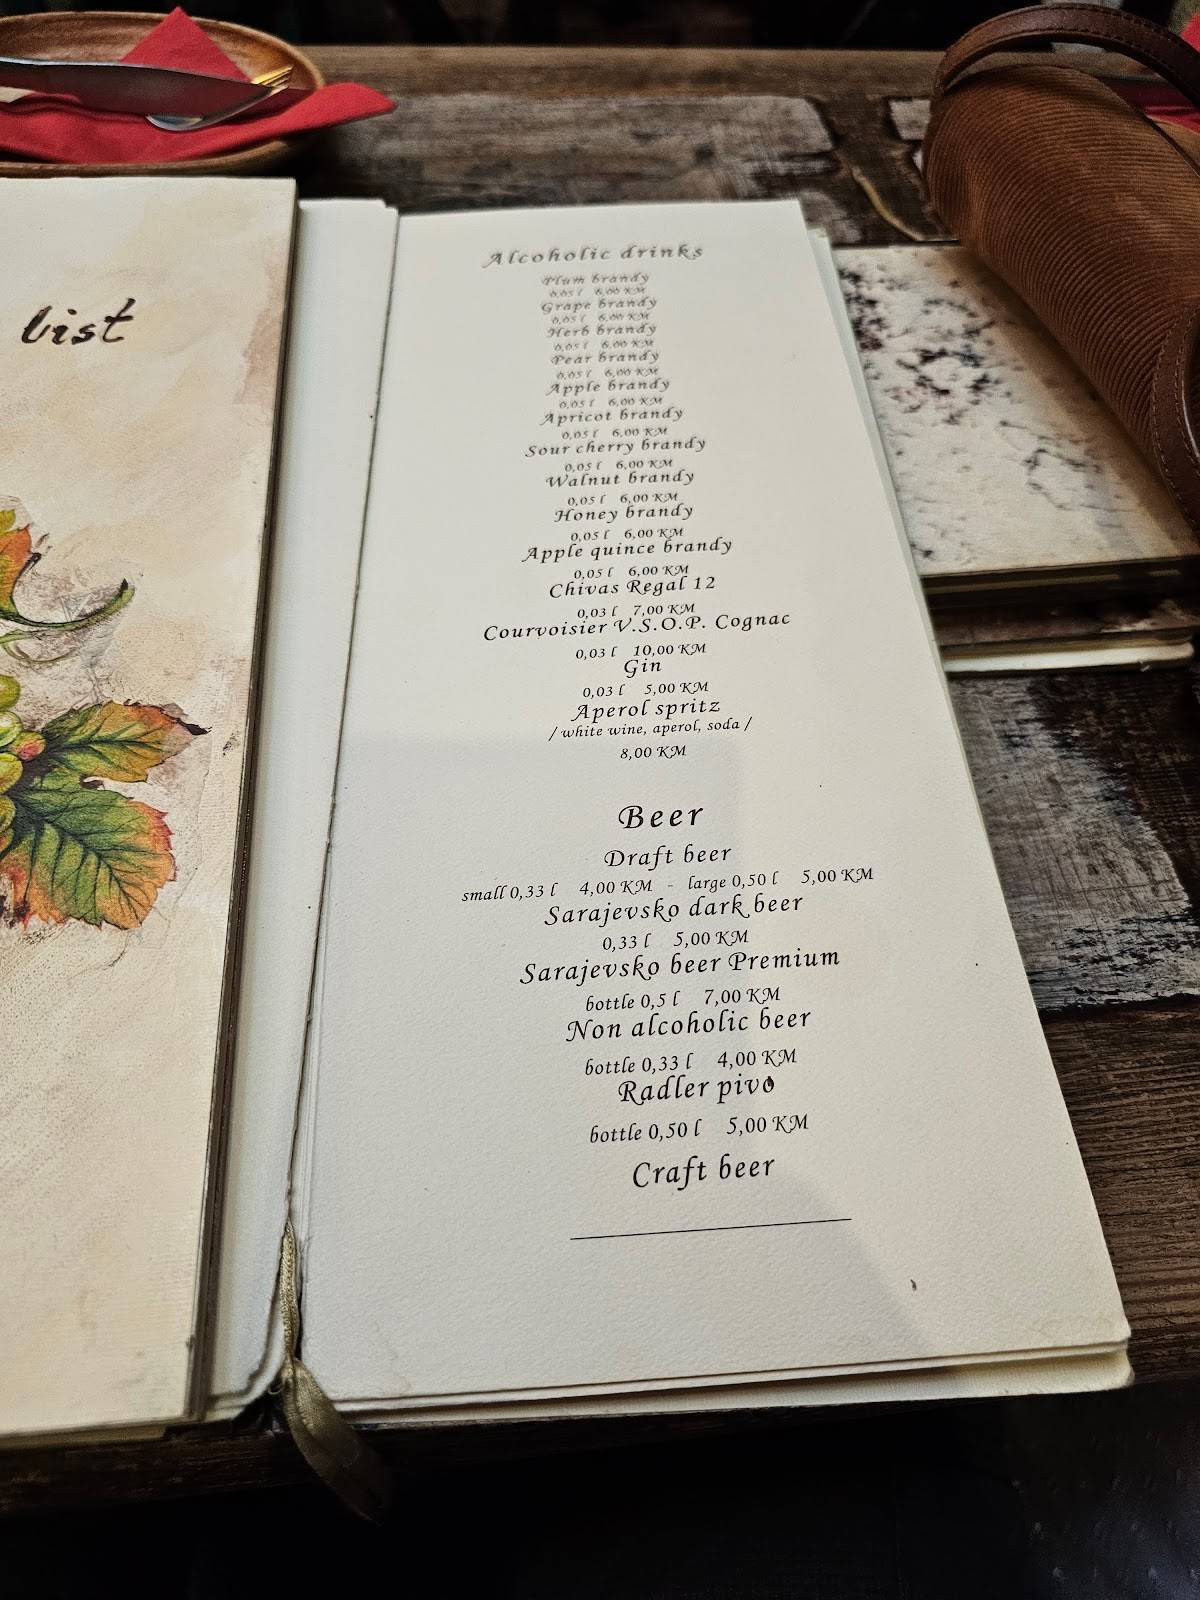 list
Alcoholic drinks
Plum brandy
0,05 l 6,00 KM
Grape brandy
0,05 l 6,00 KM
Herb brandy
0,05 l 6,00 KM
Pear brandy
0,05 l 6,00 KM
Apple brandy
0,05 l 6,00 KM
Apricot brandy
0,05 l 6,00 KM
Sour cherry brandy
0,05 l 6,00 KM
Walnut brandy
0,05 l 6,00 KM
Honey brandy
0,05 l 6,00 KM
Apple quince brandy
0,05 l 6,00 KM
Chivas Regal 12
0,03 l 7,00 KM
Courvoisier V.S.O.P. Cognac
0,03 l 10,00 KM
Gin
0,03 l 5,00 KM
Aperol spritz
/ white wine, aperol, soda /
8,00 KM
Beer
Draft beer
small 0,33 l 4,00 KM - large 0,50 l 5,00 KM
Sarajevsko dark beer
0,33 l 5,00 KM
Sarajevsko beer Premium
bottle 0,5 l 7,00 KM
Non alcoholic beer
bottle 0,33 l 4,00 KM
Radler pivo
bottle 0,50 l 5,00 KM
Craft beer